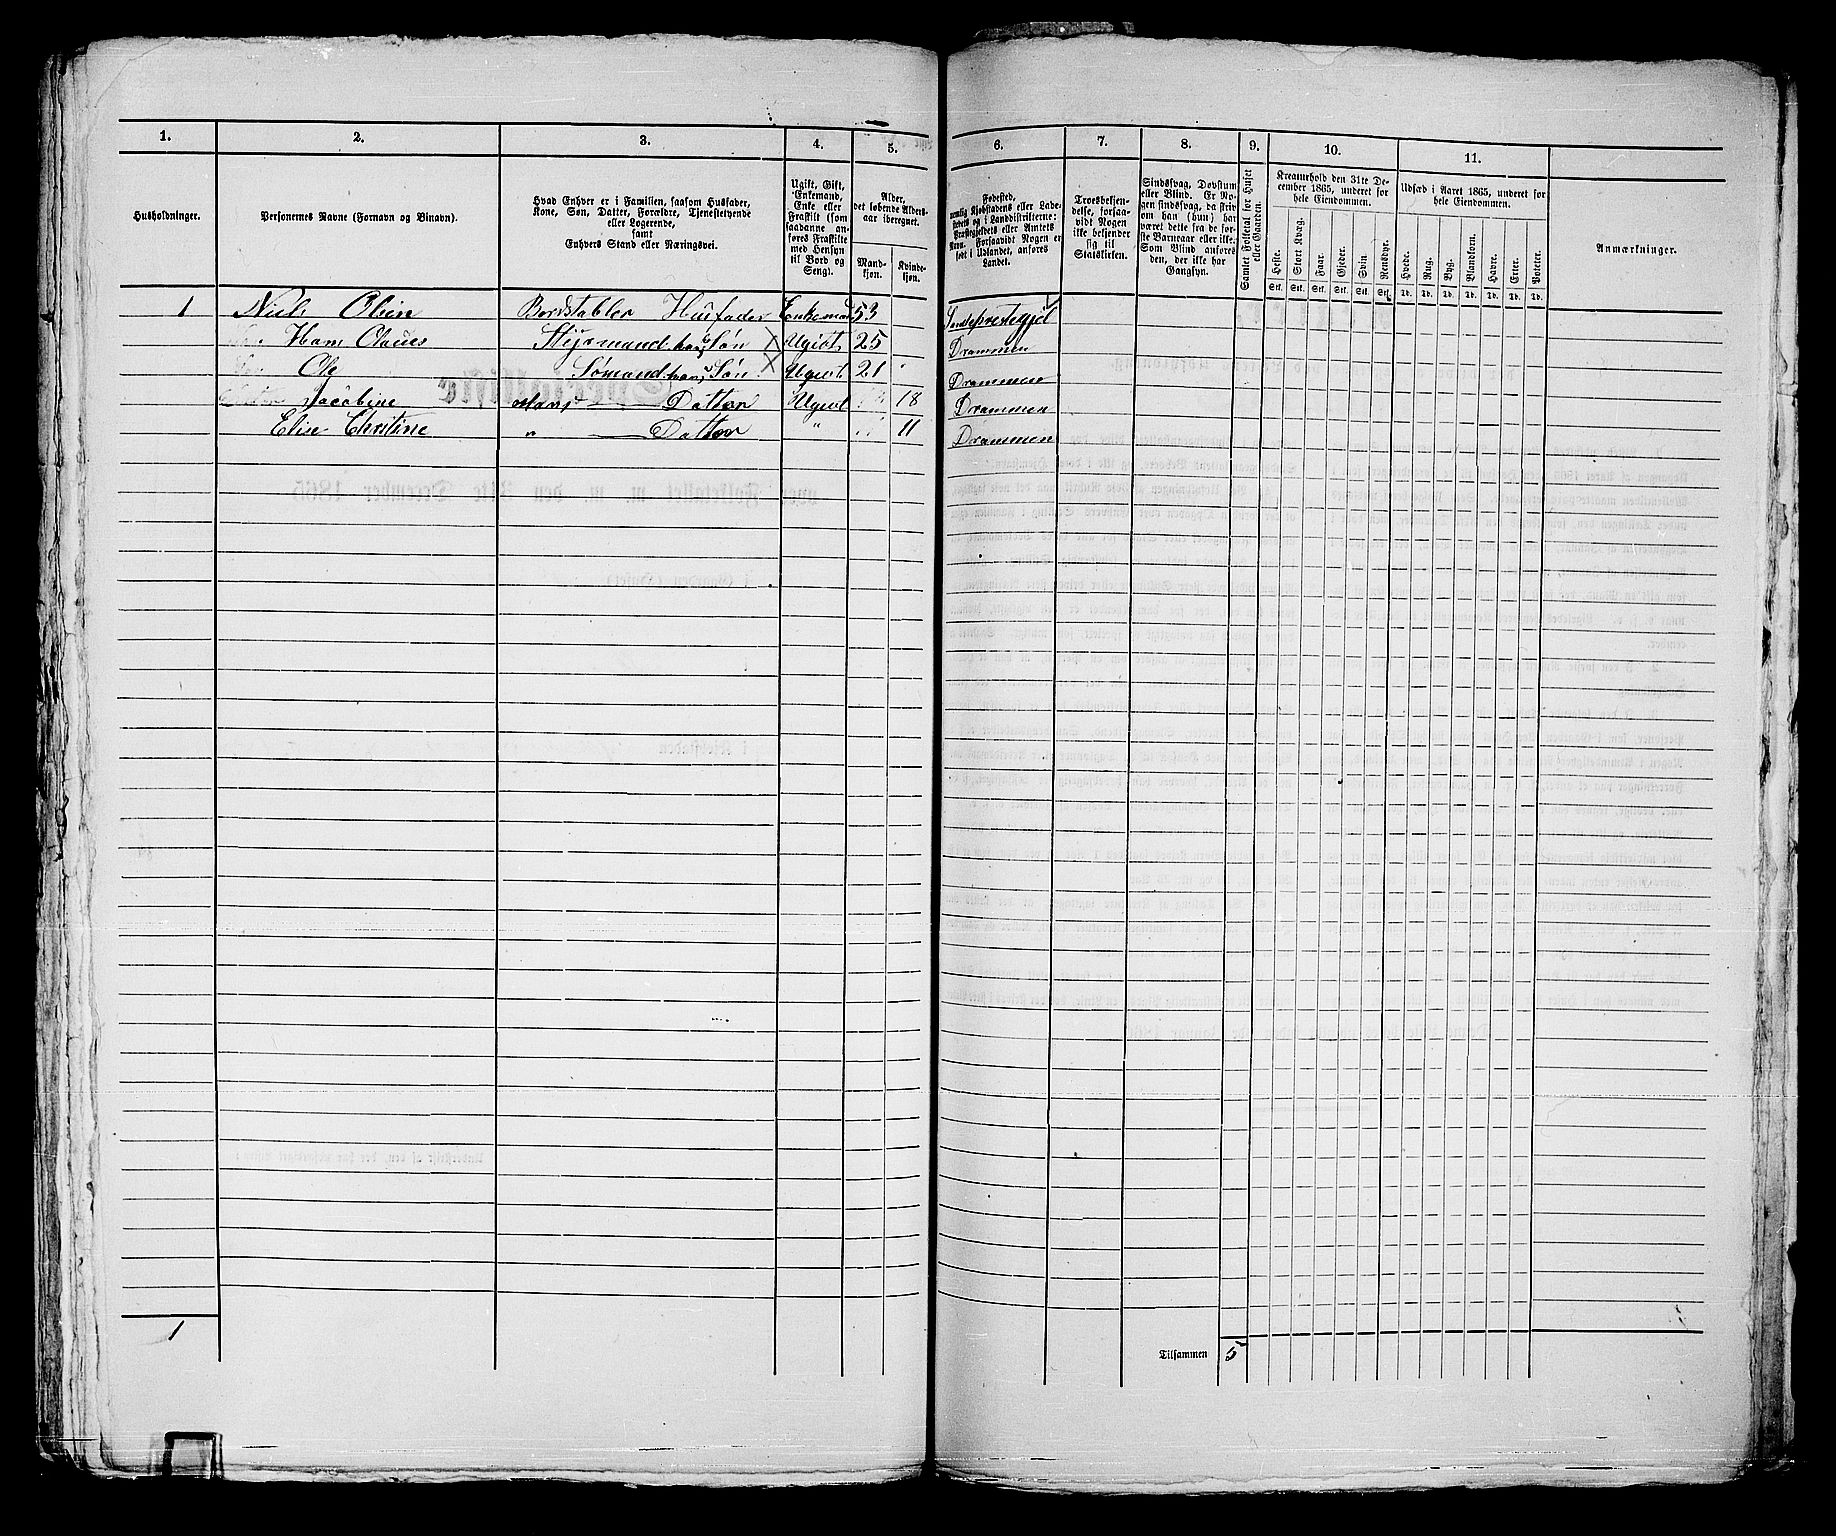 1. 2. 3. 4. 5. 6. 7. 8. 9. 10. 11.
Husholdninger.
Personernes Navne (Fornavn og Binavn).
Hvad Enhver er i Familien, saasom Husfader,
Kone, Søn, Datter, Forældre, Tjenestetyende
eller Logerende,
samt
Enhvers Stand eller Næringsvei.
Ugift, Gift,
Enkemand,
Enke eller
Fraskilt (som
saadanne anføres
Fraskilte
med Hensyn
til Bord og
Seng).
Alder,
det løbende Alders-
aar iberegnet.
Mand-
kjøn.
Kvinde-
kjøn.
Fødested,
nemlig Kjøbstadens eller Lade-
stedets og i Landdistrikterne:
Præstegjeldets eller Amtets
Navn. Forsaavidt Nogen er
født i Udlandet, anføres
Landet.
Troesbekjen-
delse, forsaa-
vidt Nogen
ikke bekjender
sig til
Statskirken.
Sindssvag, Døvstum
eller Blind. Er No-
gen sindssvag, da skriv
om han (hun) har
været dette fra de før-
ste Barneaar eller ikke.
Som Blind anføres
den, der ikke har
Gangsyn.
Samlet Folketal for Huset
eller Gaarden.
Kreaturhold den 31te De-
cember 1865, underet for
hele Eiendommen.
Heste. Stort Kvæg. Faar. Gjeder. Svin. Rensdyr.
Stk. Stk. Stk. Stk. Stk. Stk.
Udsæd i Aaret 1865, underet for
hele Eiendommen.
Hvede. Rug. Byg. Blandkorn. Havre. Erter. Poteter.
Td. Td. Td. Td. Td. Td. Td.
Anmærkninger.
1 Niels Olsen Bordstabler Husfader Enkemand 53 Sandepræstegjel
Hans Claues Styrmand hans Søn Ugivt 25 Drammen
Ole Sømand hans Søn Ugivt 21 Drammen
Jacobine Hans Datter Ugivt 18 Drammen
Elise Christine " Datter " 11 Drammen
1 Tilsammen 5